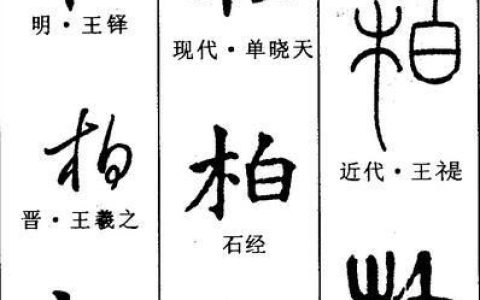 明·王铎
现代·单晓天
柏
近代·王禔
柏
晋·王羲之
柏
石经